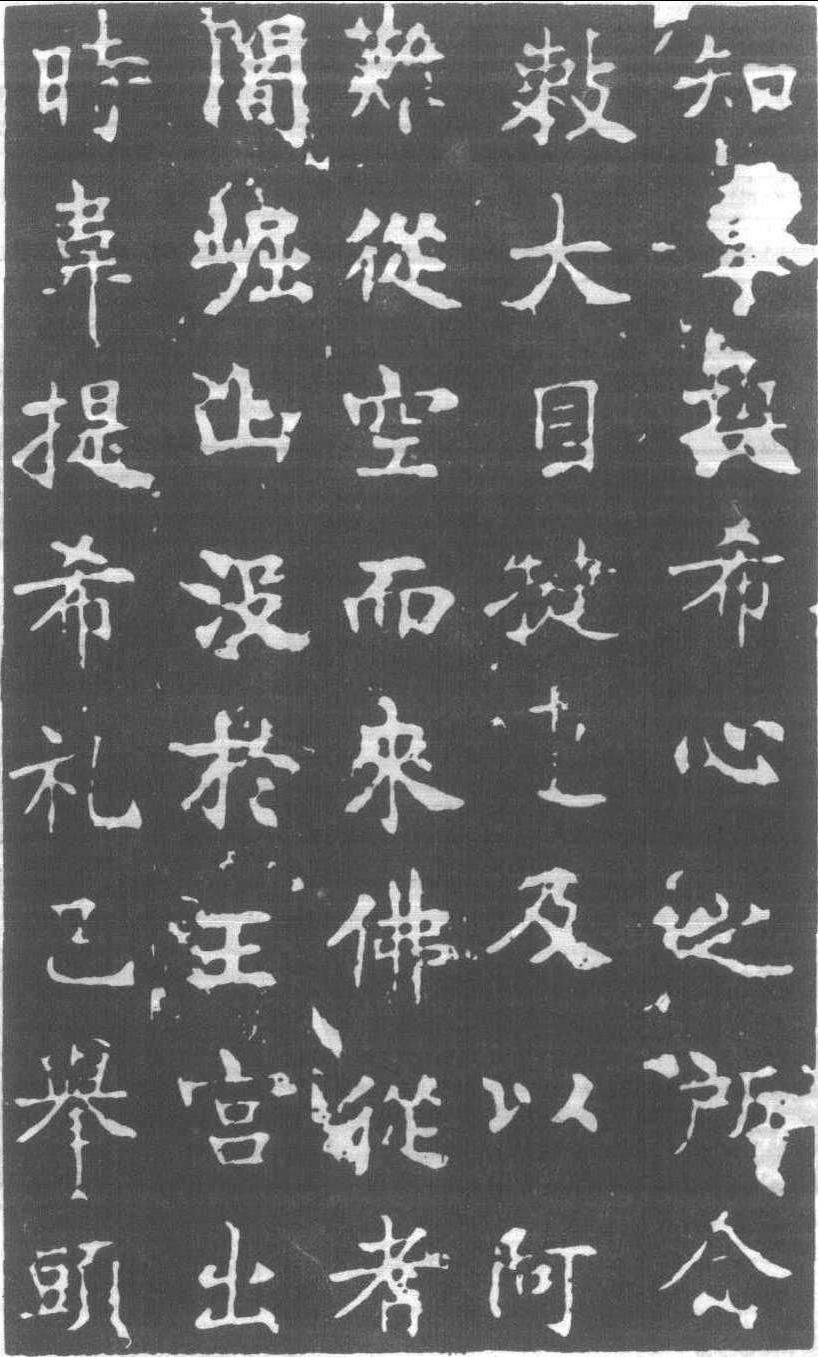 知韋提希心之所念
敕大目犍及以阿
難從空而來佛從耆
闍崛山没於王宮出
時韋提希礼已舉頭